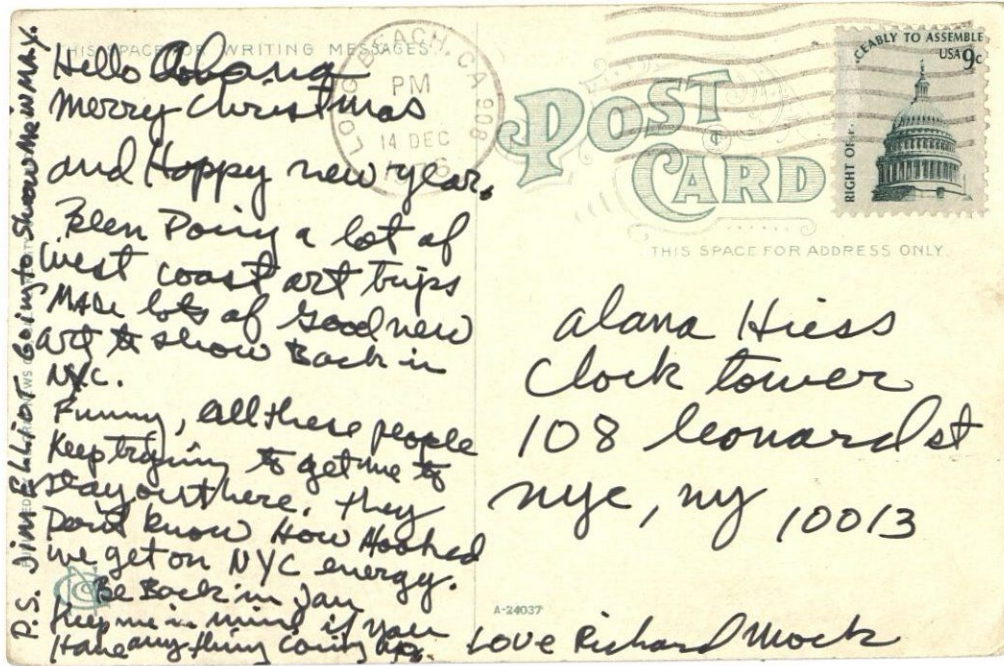 THIS SPACE FOR WRITING MESSAGES
Hello
Merry Christmas
and Happy new year.
Been Doing a lot of
West coast art trips
MADe lots of good new
art to show Back in
NYC.
Funny, all these people
Keep trying to get me to
stay out here, they
Don't know How Hooked
we get on NYC energy.
Be Back in Jan
Keep me in mind if you
Have any thing coming up.
P.S. JiM ELLiOT Going to Show Me iN MAY.
LONG BEACH, CA 908
PM
14 DEC
1976
POST CARD
CEABLY TO ASSEMBLE
USA 9c
RIGHT OF
THIS SPACE FOR ADDRESS ONLY
alana Hiess
Clock tower
108 leonard st
nyc, ny 10013
A-24037
LOVE Richard Mock